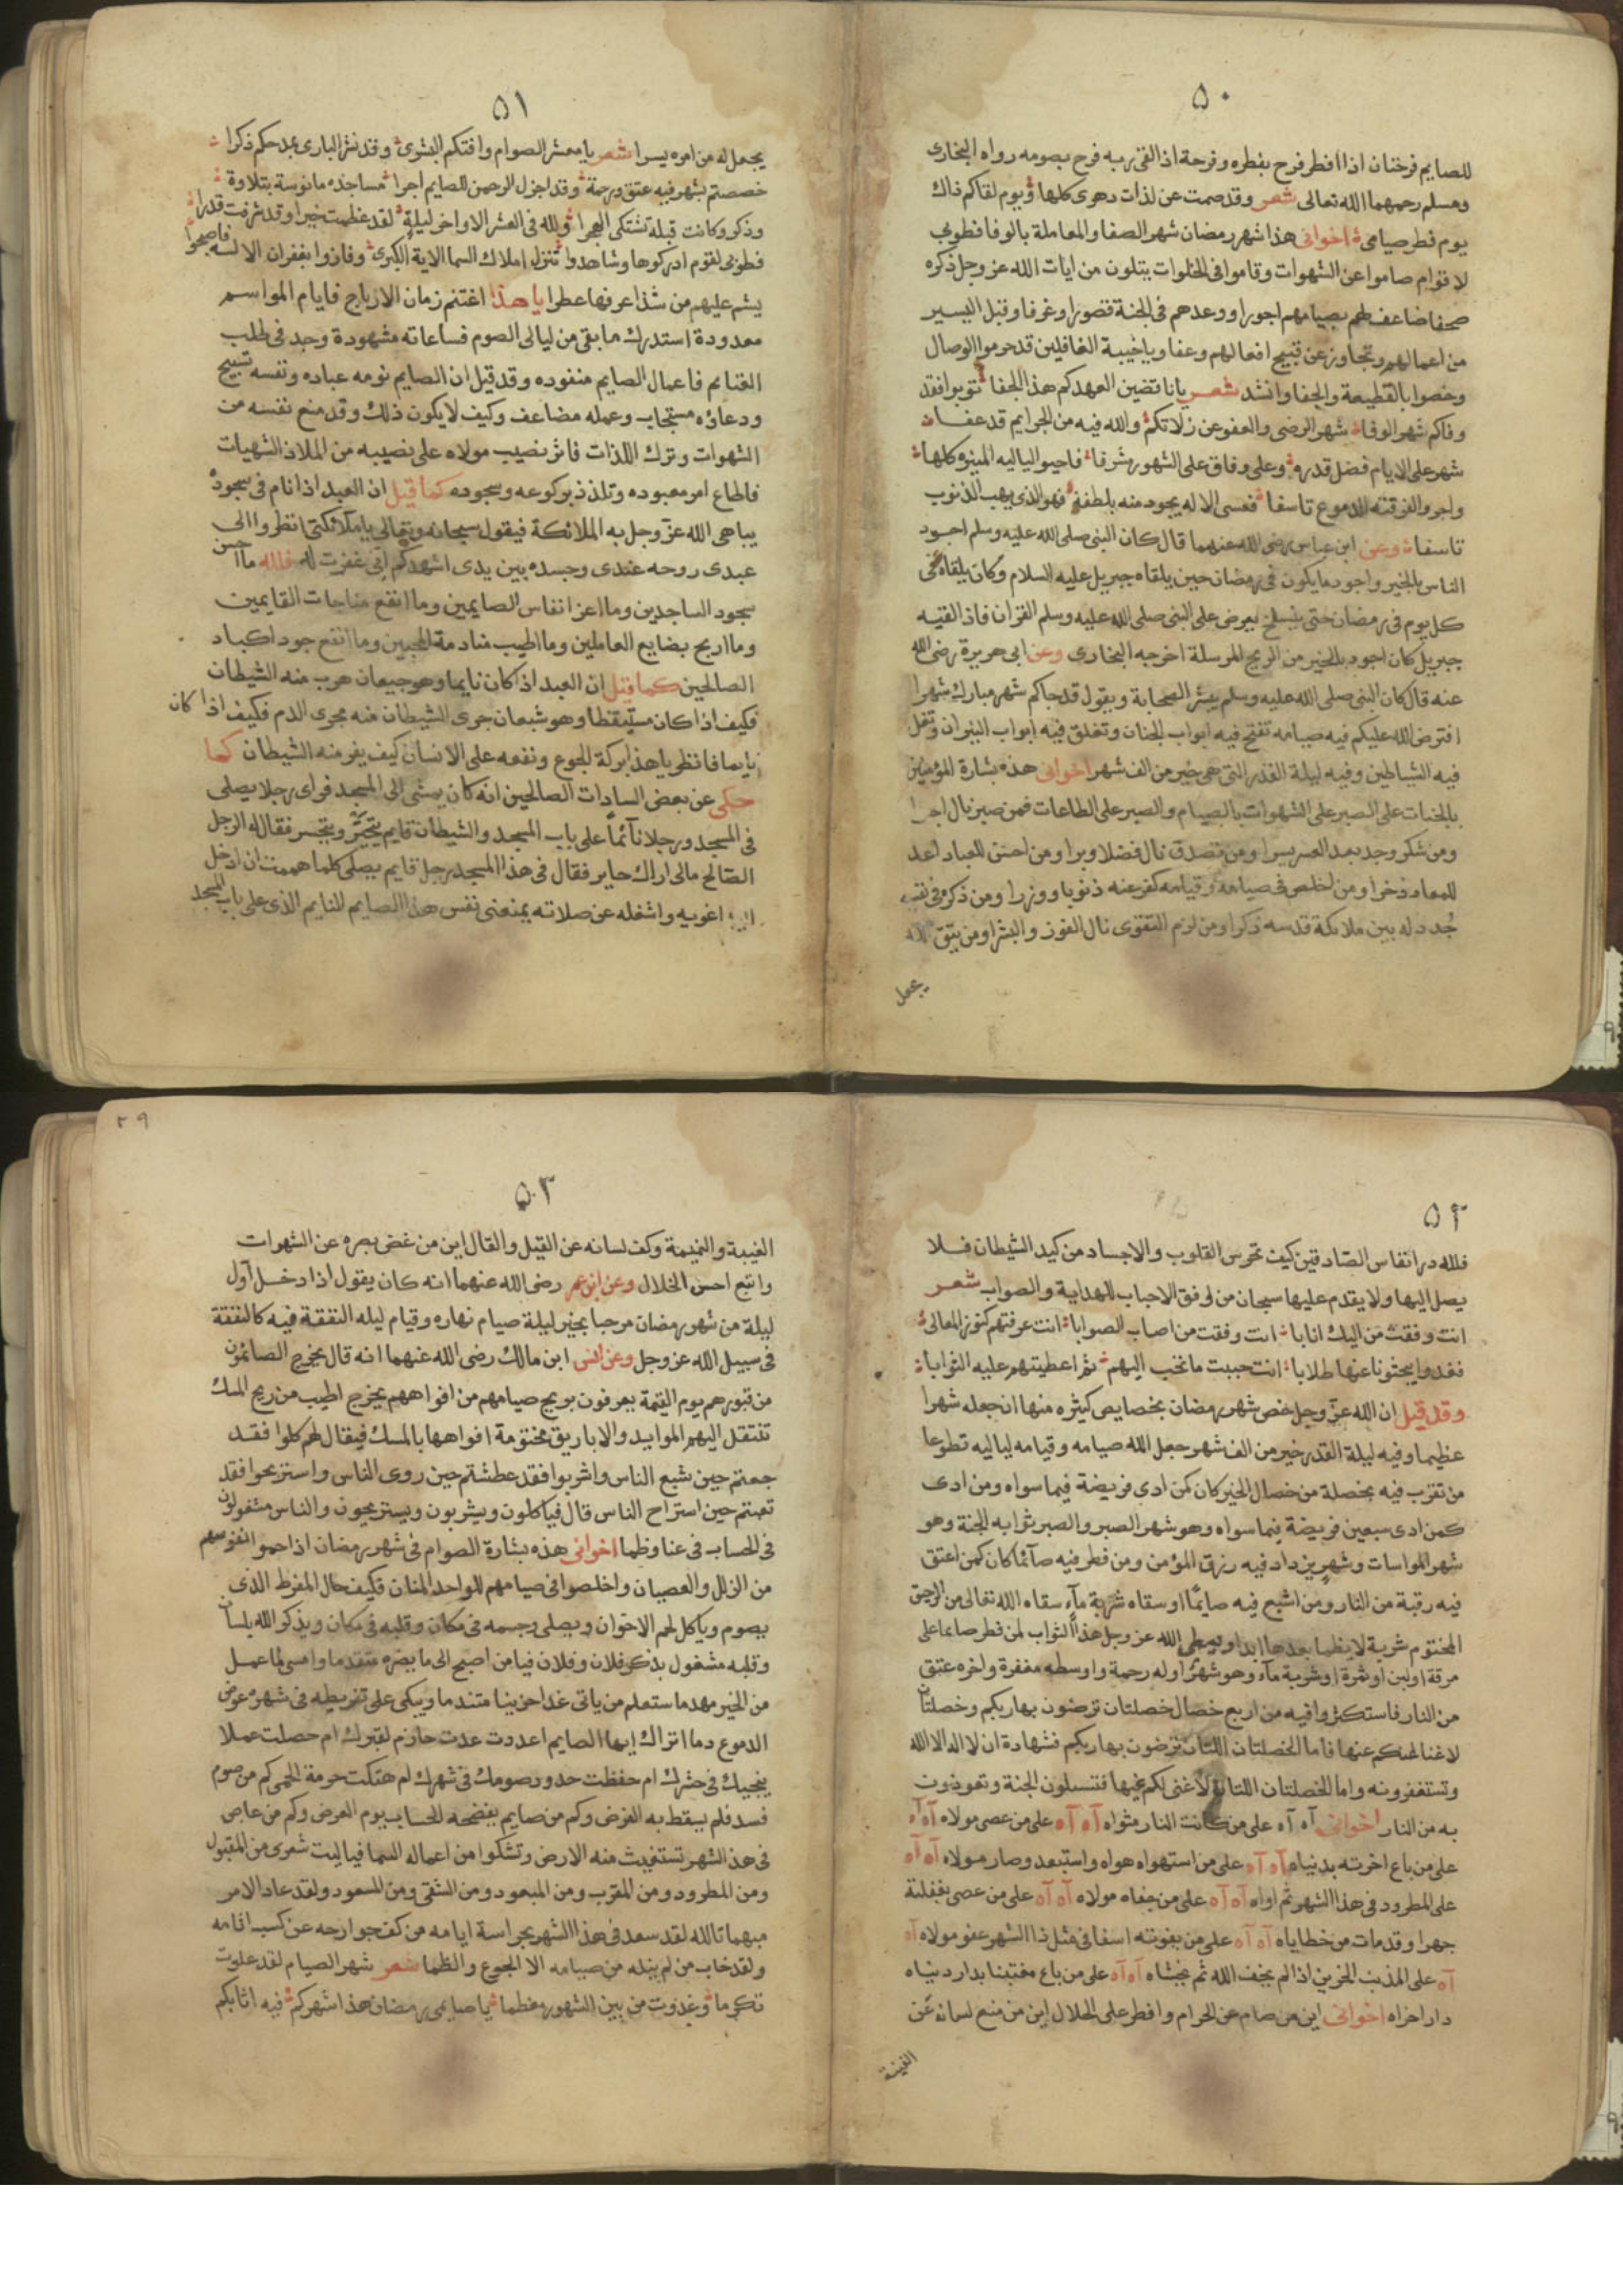 ٥٠
للصايم فرختان اذا افطر فرح بفطره وفرحة اذا لقى ربه فرح بصومه رواه البخارى
ومسلم رحمهما الله تعالى شعر وقد صمت عن لذات دهرى كلها ويوم لقاكم ذاك
يوم فطر صيامى اخوانى هذا شهر رمضان شهر الصفا والمعاملة بالوفا فطوبى
لاقوام صاموا عن الشهوات وقاموا فى الخلوات يتلون من ايات الله عز وجل ذكره
صحفا ضاعف لهم بصيامهم اجورا ووعدهم فى الجنة قصورا وغرفا وقبل اليسير
من اعمالهم وتجاوز عن قبيح افعالهم وعفا وياخيبة الغافلين قد حرموا الوصال
وخصوا بالقطيعة والجفا وانشد شعر يا ناقضين العهد كم هذا الجفا توبوا فقد
وفاكم شهر الوفا شهر الرضى والعفو عن زلاتكم والله فيه من الجرايم قد عفا
شهر على الايام فضل قدره وعلى وفاق على الشهور شرفا فاحيوا لياليه المنيره كلها
واجروا لفرقته الدموع تاسفا فعسى الاله يجود منه بلطفة فهو الذى يهب الذنوب
تاسفا وعن ابن عباس رضى الله عنهما قال كان النبى صلى الله عليه وسلم اجود
الناس بالخير واجود ما يكون فى رمضان حين يلقاه جبريل عليه السلام وكان يلقاه فى
كل يوم فى رمضان حتى ينسلخ يعرض على النبى صلى الله عليه وسلم القران فاذا لقيه
جبريل كان اجود بالخير من الريح المرسلة اخرجه البخارى وعن ابى هريرة رضى الله
عنه قال كان النبى صلى الله عليه وسلم يبشر الصحابة ويقول قد جاكم شهر مبارك شهرا
افترض الله عليكم فيه صيامه تفتح فيه ابواب الجنان وتغلق فيه ابواب النيران وتغل
فيه الشياطين وفيه ليلة القدر التى هى خير من الف شهر اخوانى هذه بشارة المؤمنين
بالجنات على الصبر على الشهوات بالصيام والصبر على الطاعات فمن صبر نال اجرا
ومن شكر وجد بعد العسر يسرا ومن تصدق نال فضلا وبرا ومن احسن للعباد اعد
للمعاد ذخرا ومن اخلص فى صيامه وقيامه كفر عنه ذنوبا ووزرا ومن ذكره فى نفسه
جدد له بين ملايكة قدسه ذكرا ومن لزم التقوى نال الفوز والبشرا ومن يتق الله
يجعل
٥١
يجعل له من امره يسرا شعر يا معشر الصوام وافتكم البشرى وقد نشر البارى بمدحكم ذكرا
خصصتم بشهر فيه عتق ورحمة وقد اجزل الرحمن للصايم اجرا مساجده مانوسة بتلاوة
وذكر وكانت قبله تشتكى الهجرا ولله فى العشر الاواخر ليلة لقد عظمت خيرا وقد شرفت قدرا
فطوبى لقوم ادركوها وشاهدوا تنزل املاك السما الاية الكبرى وفازوا بغفران الاله فاصبحوا
يشم عليهم من شذا عرفها عطرا يا هذا اغتنم زمان الارباح فايام المواسم
معدودة استدرك ما بقى من ليالى الصوم فساعاته مشهودة وجد فى طلب
الغنايم فاعمال الصايم منقوده وقد قيل ان الصايم نومه عباده ونفسه تسبيح
ودعاؤه مستجاب وعمله مضاعف وكيف لا يكون ذلك وقد منع نفسه من
الشهوات وترك اللذات فاثر نصيب مولاه على نصيبه من الملاذ الشهيات
فاطاع امر معبوده وتلذذ بركوعه وسجوده كما قيل ان العبد اذا نام فى سجوده
يباهى الله عز وجل به الملائكة فيقول سبحانه وتعالى يا ملائكتى انظروا الى
عبدى روحه عندى وجسده بين يدى اشهدكم انى غفرت له فلله ما احسن
سجود الساجدين وما اعز انفاس الصايمين وما انفع مناجات القايمين
وما اربح بضايع العاملين وما اطيب منادمة المحبين وما انفع جود اكباد
الصالحين كما قيل ان العبد اذا كان نايما وهو جيعان هرب منه الشيطان
فكيف اذا كان مستيقظا وهو شبعان جرى الشيطان منه مجرى الدم فكيف اذا كان
نايما فانظر يا هذا بركة الجوع ونفعه على الانسان كيف يفر منه الشيطان كما
حكى عن بعض السادات الصالحين انه كان يمشى الى المسجد فراى رجلا يصلى
فى المسجد ورجلا نائما على باب المسجد والشيطان قايم يتحير ويتحسر فقال له الرجل
الصالح مالى اراك حاير فقال فى هذا المسجد رجل قايم يصلى كلما هممت ان ادخل
اليه اغويه واشغله عن صلاته يمنعنى نفس هذا الصايم النايم الذى على باب المسجد
٥٢
فلله در انفاس الصادقين كيف تحرس القلوب والاجساد من كيد الشيطان فلا
يصل اليها ولا يقدم عليها سبحان من وفق الاحباب للهداية والصواب شعر
انت وفقت من اليك انابا انت وفقت من اصاب الصوابا انت عرفتهم كنوز المعالى
فغدوا يبحثونا عنها طلابا انت حببت ما تحب اليهم ثم اعطيتهم عليه الثوابا
وقد قيل ان الله عز وجل خص شهر رمضان بخصايص كثيره منها ان جعله شهرا
عظيما وفيه ليلة القدر خير من الف شهر جعل الله صيامه وقيامه لياليه تطوعا
من تقرب فيه بخصلة من خصال الخير كان كمن ادى فريضة فيما سواه ومن ادى
كمن ادى سبعين فريضة فيما سواه وهو شهر الصبر والصبر ثوابه الجنة وهو
شهر المواسات وشهر يزداد فيه رزق المؤمن ومن فطر فيه صآئما كان كمن اعتق
فيه رقبة من النار ومن اشبع فيه صايما او سقاه شربة مآء سقاه الله تعالى من الرحيق
المختوم شربة لا يظما بعدها ابدا ويعطى الله عز وجل هذا الثواب لمن فطر صايما على
مرقة او لبن او تمرة او شربة مآء وهو شهر اوله رحمة واوسطه مغفرة واخره عتق
من النار فاستكثروا فيه من اربع خصال خصلتان ترضون بها ربكم وخصلتان
لا غنا لكم عنها فاما الخصلتان اللتان ترضون بها ربكم فشهادة ان لا اله الا الله
وتستغفرونه واما الخصلتان اللتان لا غنى لكم عنها فتسلون الجنة وتعوذون
به من النار اخوانى آه آه على من كانت النار مثواه آه آه على من عصى مولاه آه آه
على من باع اخرته بدنياه آه آه على من استهواه هواه واستبعد وصار مولاه آه آه
على المطرود فى هذا الشهر ثم اواه آه آه على من جفاه مولاه آه آه على من عصى بغفلته
جهرا وقد مات من خطاياه آه آه على من يفوته اسفا فى مثل ذا الشهر عفو مولاه آه
آه على المذنب الحزين اذا لم يخف الله ثم يخشاه آه آه على من باع مغتبنا بدار دنياه
دار اخراه اخوانى اين من صام عن الحرام وافطر على الحلال اين من منع لسانه عن
الغيبة
٢٩
٥٣
الغيبة والنميمة وكف لسانه عن القيل والقال اين من غض بصره عن الشهوات
واتبع احسن الخلال وعن ابن عمر رضى الله عنهما انه كان يقول اذا دخل اول
ليلة من شهر رمضان مرحبا بخير ليلة صيام نهاره وقيام ليله النفقة فيه كالنفقة
فى سبيل الله عز وجل وعن انس ابن مالك رضى الله عنهما انه قال يخرج الصائمون
من قبورهم يوم القيمة يعرفون بريح صيامهم من افواههم يخرج اطيب من ريح المسك
تنتقل اليهم الموايد والاباريق مختومة افواهها بالمسك فيقال لهم كلوا فقد
جعتم حين شبع الناس واشربوا فقد عطشتم حين روى الناس واستريحوا فقد
تعبتم حين استراح الناس قال فياكلون ويشربون ويستريحون والناس مشغولون
فى الحساب فى عنا وظما اخوانى هذه بشارة الصوام فى شهر رمضان اذا حموا انفوسهم
من الزلل والعصيان واخلصوا فى صيامهم للواحد المنان فكيف حال المفرط الذى
يصوم وياكل لحم الاخوان ويصلى وجسمه فى مكان وقلبه فى مكان ويذكر الله بلسان
وقلبه مشغول بذكر فلان وفلان فيا من اصبح الى ما يضره متقدما وامسى لما عمل
من الخير مهدما ستعلم من ياتى غدا حزينا متندما ويبكى على تفريطه فى شهره عوض
الدموع دما اتراك ايها الصايم اعددت عدت حازم لقبرك ام حصلت عملا
ينجيك فى حشرك ام حفظت حدود صومك فى شهرك ام هتكت حرمة الحمى كم من صوم
فسد فلم يسقط به الفرض وكم من صايم يفضحه الحساب يوم العرض وكم من عاص
فى هذا الشهر تستغيث منه الارض وتشكوا من اعماله السما فياليت شعرى من المقبول
ومن المطرود ومن المقرب ومن المبعود ومن الشقى ومن المسعود ولقد عاد الامر
مبهما تالله لقد سعد فى هذا الشهر بحراسة ايامه من كف جوارحه عن كسب اثامه
ولقد خاب من لم ينله من صيامه الا الجوع والظما شعر شهر الصيام لقد علوت
تكرما وغدوت من بين الشهور معظما يا صايمى رمضان هذا شهركم فيه اثابكم